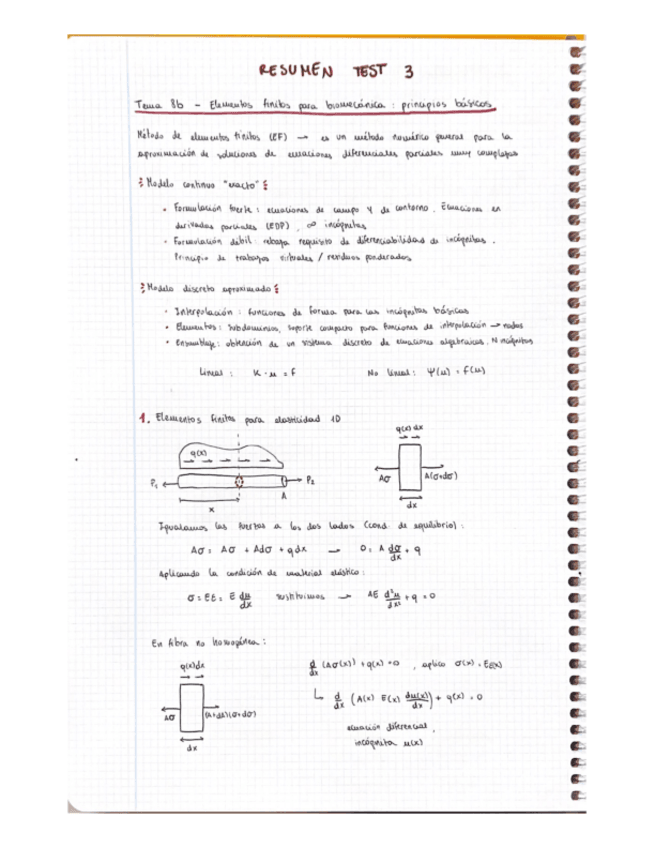 RESUMEN TEST 3
Tema 8b - Elementos finitos para biomecánica: principios básicos
Método de elementos finitos (EF) → es un método numérico general para la
aproximación de soluciones de ecuaciones diferenciales parciales muy complejas
Modelo continuo "exacto"
• Formulación fuerte: ecuaciones de campo y de contorno. Ecuaciones en
derivadas parciales (EDP), ∞ incógnitas
• Formulación débil: rebaja requisito de diferenciabilidad de incógnitas.
Principio de trabajos virtuales / residuos ponderados
Modelo discreto aproximado
• Interpolación: funciones de forma para las incógnitas básicas
• Elementos: subdominios, soporte compacto para funciones de interpolación → nodos
• Ensamblaje: obtención de un sistema discreto de ecuaciones algebraicas. N incógnitas
Lineal: K·u = f No lineal: Ψ(u) = f(u)
1. Elementos finitos para elasticidad 1D
q(x) dx
q(x)
P₁ P₂ Aσ A(σ+dσ)
x A dx
Igualamos las fuerzas a los dos lados (cond. de equilibrio):
Aσ = Aσ + Adσ + qdx → 0 = A dσ/dx + q
Aplicando la condición de material elástico:
σ = Eε = E du/dx sustituimos → AE d²u/dx² + q = 0
En fibra no homogénea:
q(x)dx
d/dx (Aσ(x)) + q(x) = 0, aplico σ(x) = Eε(x)
Aσ (A+dA)(σ+dσ)
↳ d/dx (A(x) E(x) du(x)/dx) + q(x) = 0
dx
ecuación diferencial,
incógnita u(x)